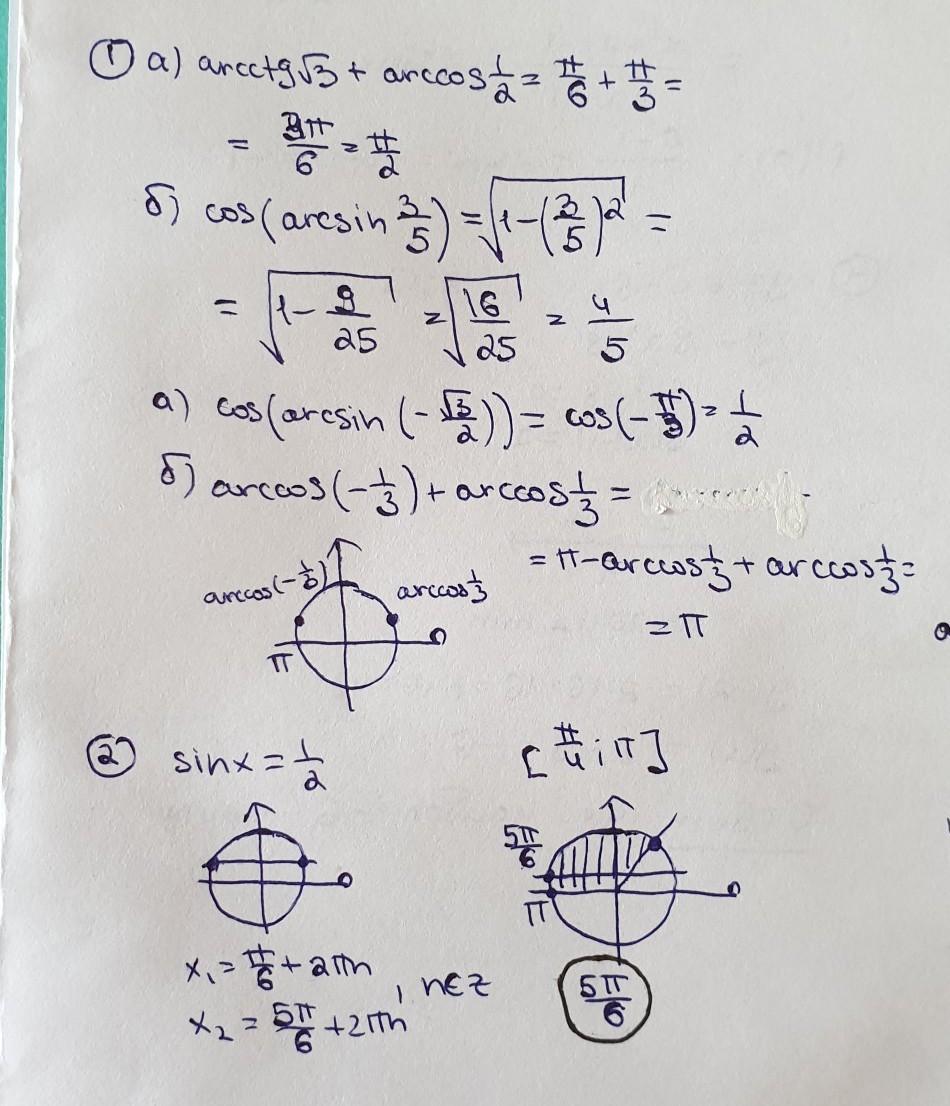 ① а) arcctg√3 + arccos 1/2 = π/6 + π/3 =
= 3π/6 = π/2
б) cos(arcsin 3/5) = √(1-(3/5)²) =
= √(1 - 9/25) = √(16/25) = 4/5
а) cos(arcsin(-√3/2)) = cos(-π/3) = 1/2
б) arccos(-1/3) + arccos 1/3 =
= π-arccos 1/3 + arccos 1/3 =
= π
arccos(-1/3) arccos 1/3
π 0
② sinx = 1/2 [π/4; π]
5π/6
0 π 0
x₁ = π/6 + 2πn
, n∈Z
x₂ = 5π/6 + 2πn
5π/6